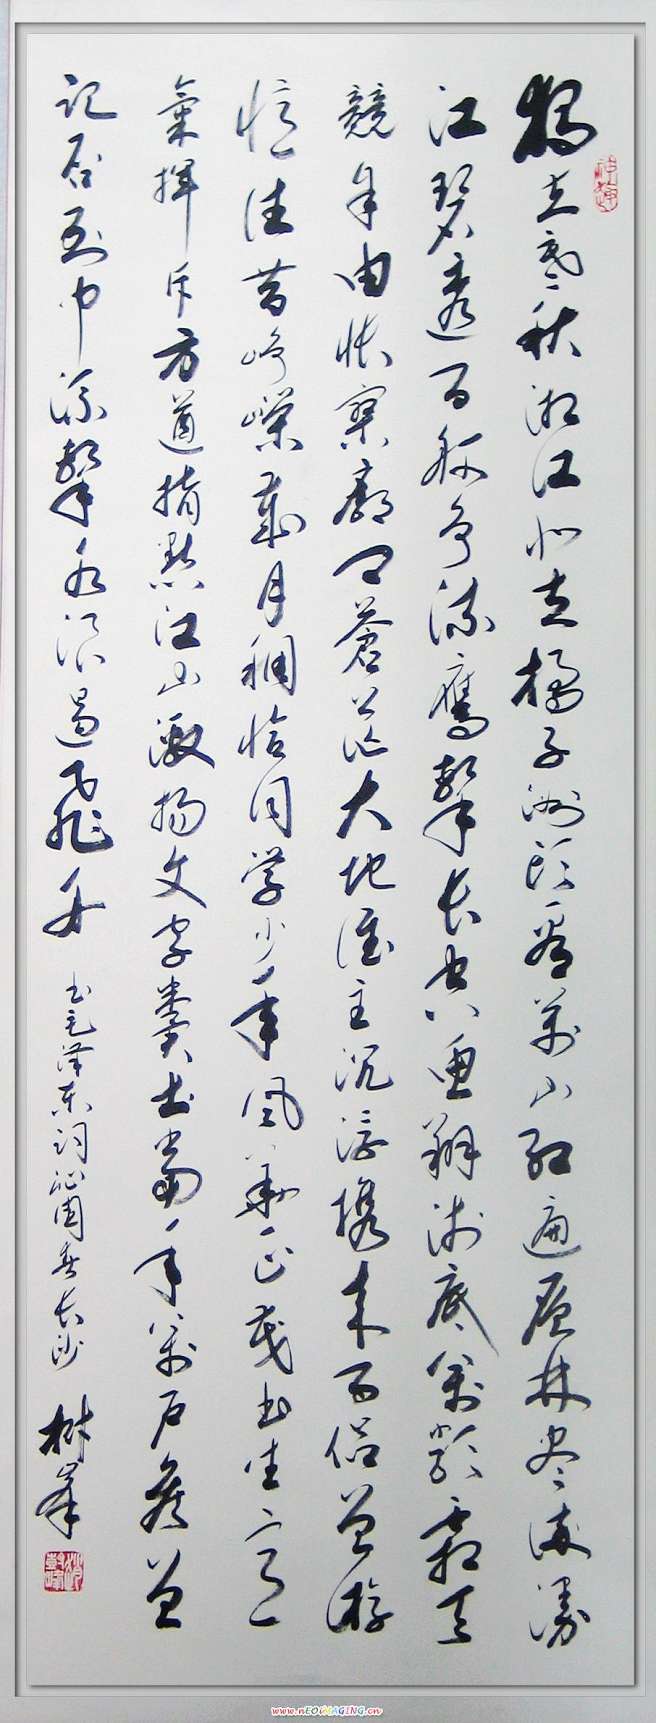 獨立寒秋湘江北去橘子洲头看萬山红遍层林尽染漫
江碧透百舸争流鷹擊长空鱼翔浅底萬類霜天
競自由怅寥廓问蒼茫大地谁主沉浮携来百侣曾游
忆往昔峥嵘歲月稠恰同学少年风华正茂书生意
氣挥斥方遒指點江山激扬文字糞土當年萬户侯曾
记否到中流擊水浪遏飛舟
书毛泽东词沁园春长沙
树峯
www.nEOiMAGING.cn